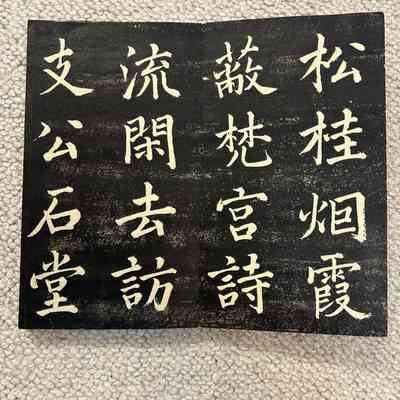 松桂烟霞
蔽梵宮詩
流閑去訪
支公石堂